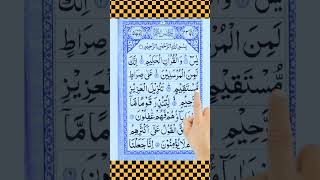 بِسْمِ اللّٰهِ الرَّحْمٰنِ الرَّحِیْمِ
یٰسٓ ۚ وَ الْقُرْاٰنِ الْحَكِیْمِ ۙ اِنَّكَ
لَمِنَ الْمُرْسَلِیْنَ ۙ عَلٰى صِرَاطٍ
مُّسْتَقِیْمٍ ؕ تَنْزِیْلَ الْعَزِیْزِ
الرَّحِیْمِ ۙ لِتُنْذِرَ قَوْمًا مَّاۤ
اٰبَآؤُهُمْ فَهُمْ غٰفِلُوْنَ
الْقَوْلُ عَلٰۤى اَكْثَرِهِمْ
لَا یُؤْمِنُوْنَ اِنَّا جَعَلْنَا